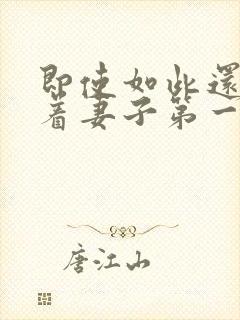 即使如此還
着妻子第一
唐江山